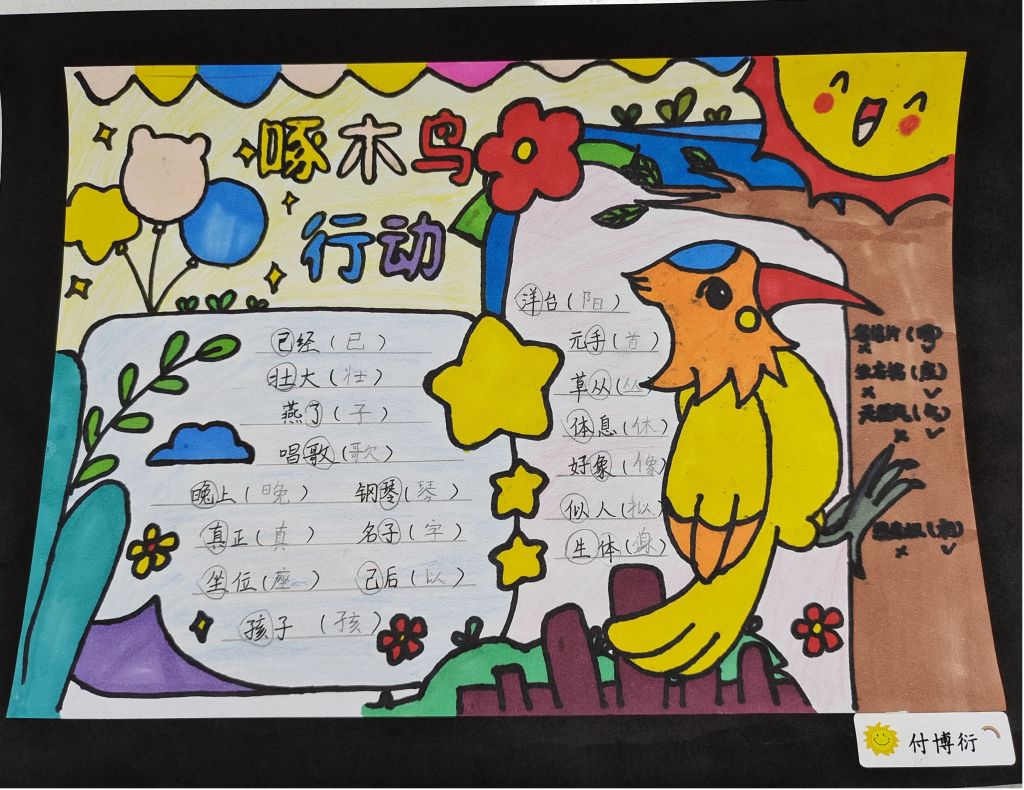 啄木鸟
行动
已经（已）
壮大（壮）
燕了（子）
唱歌（歌）
晚上（晚） 钢琴（琴）
真正（真） 名子（字）
坐位（座） 己后（以）
孩子（孩）
洋台（阳）
元手（首）
草从（丛）
体息（休）
好象（像）
似人（拟）
生体（身）
付博衍